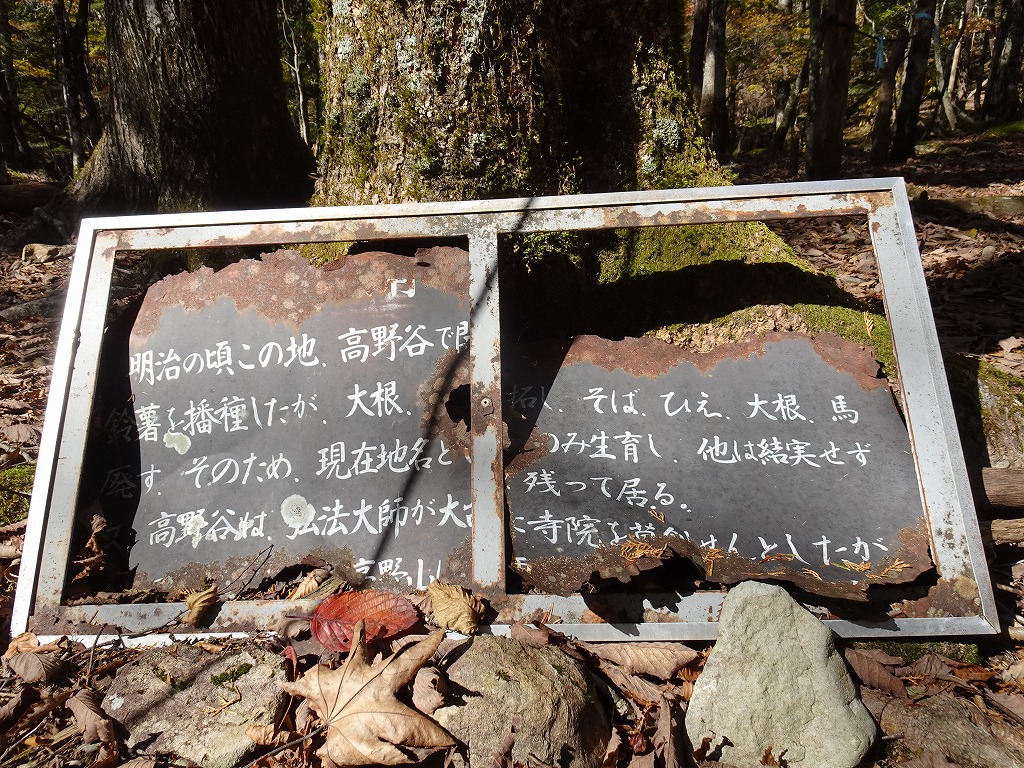 明治の頃この地、高野谷で開拓し、そば、ひえ、大根、馬
鈴薯を播種したが、大根、のみ生育し、他は結実せず
廃す。そのため、現在地名と残って居る。
高野谷は、弘法大師が大寺院を せんとしたが
高野山